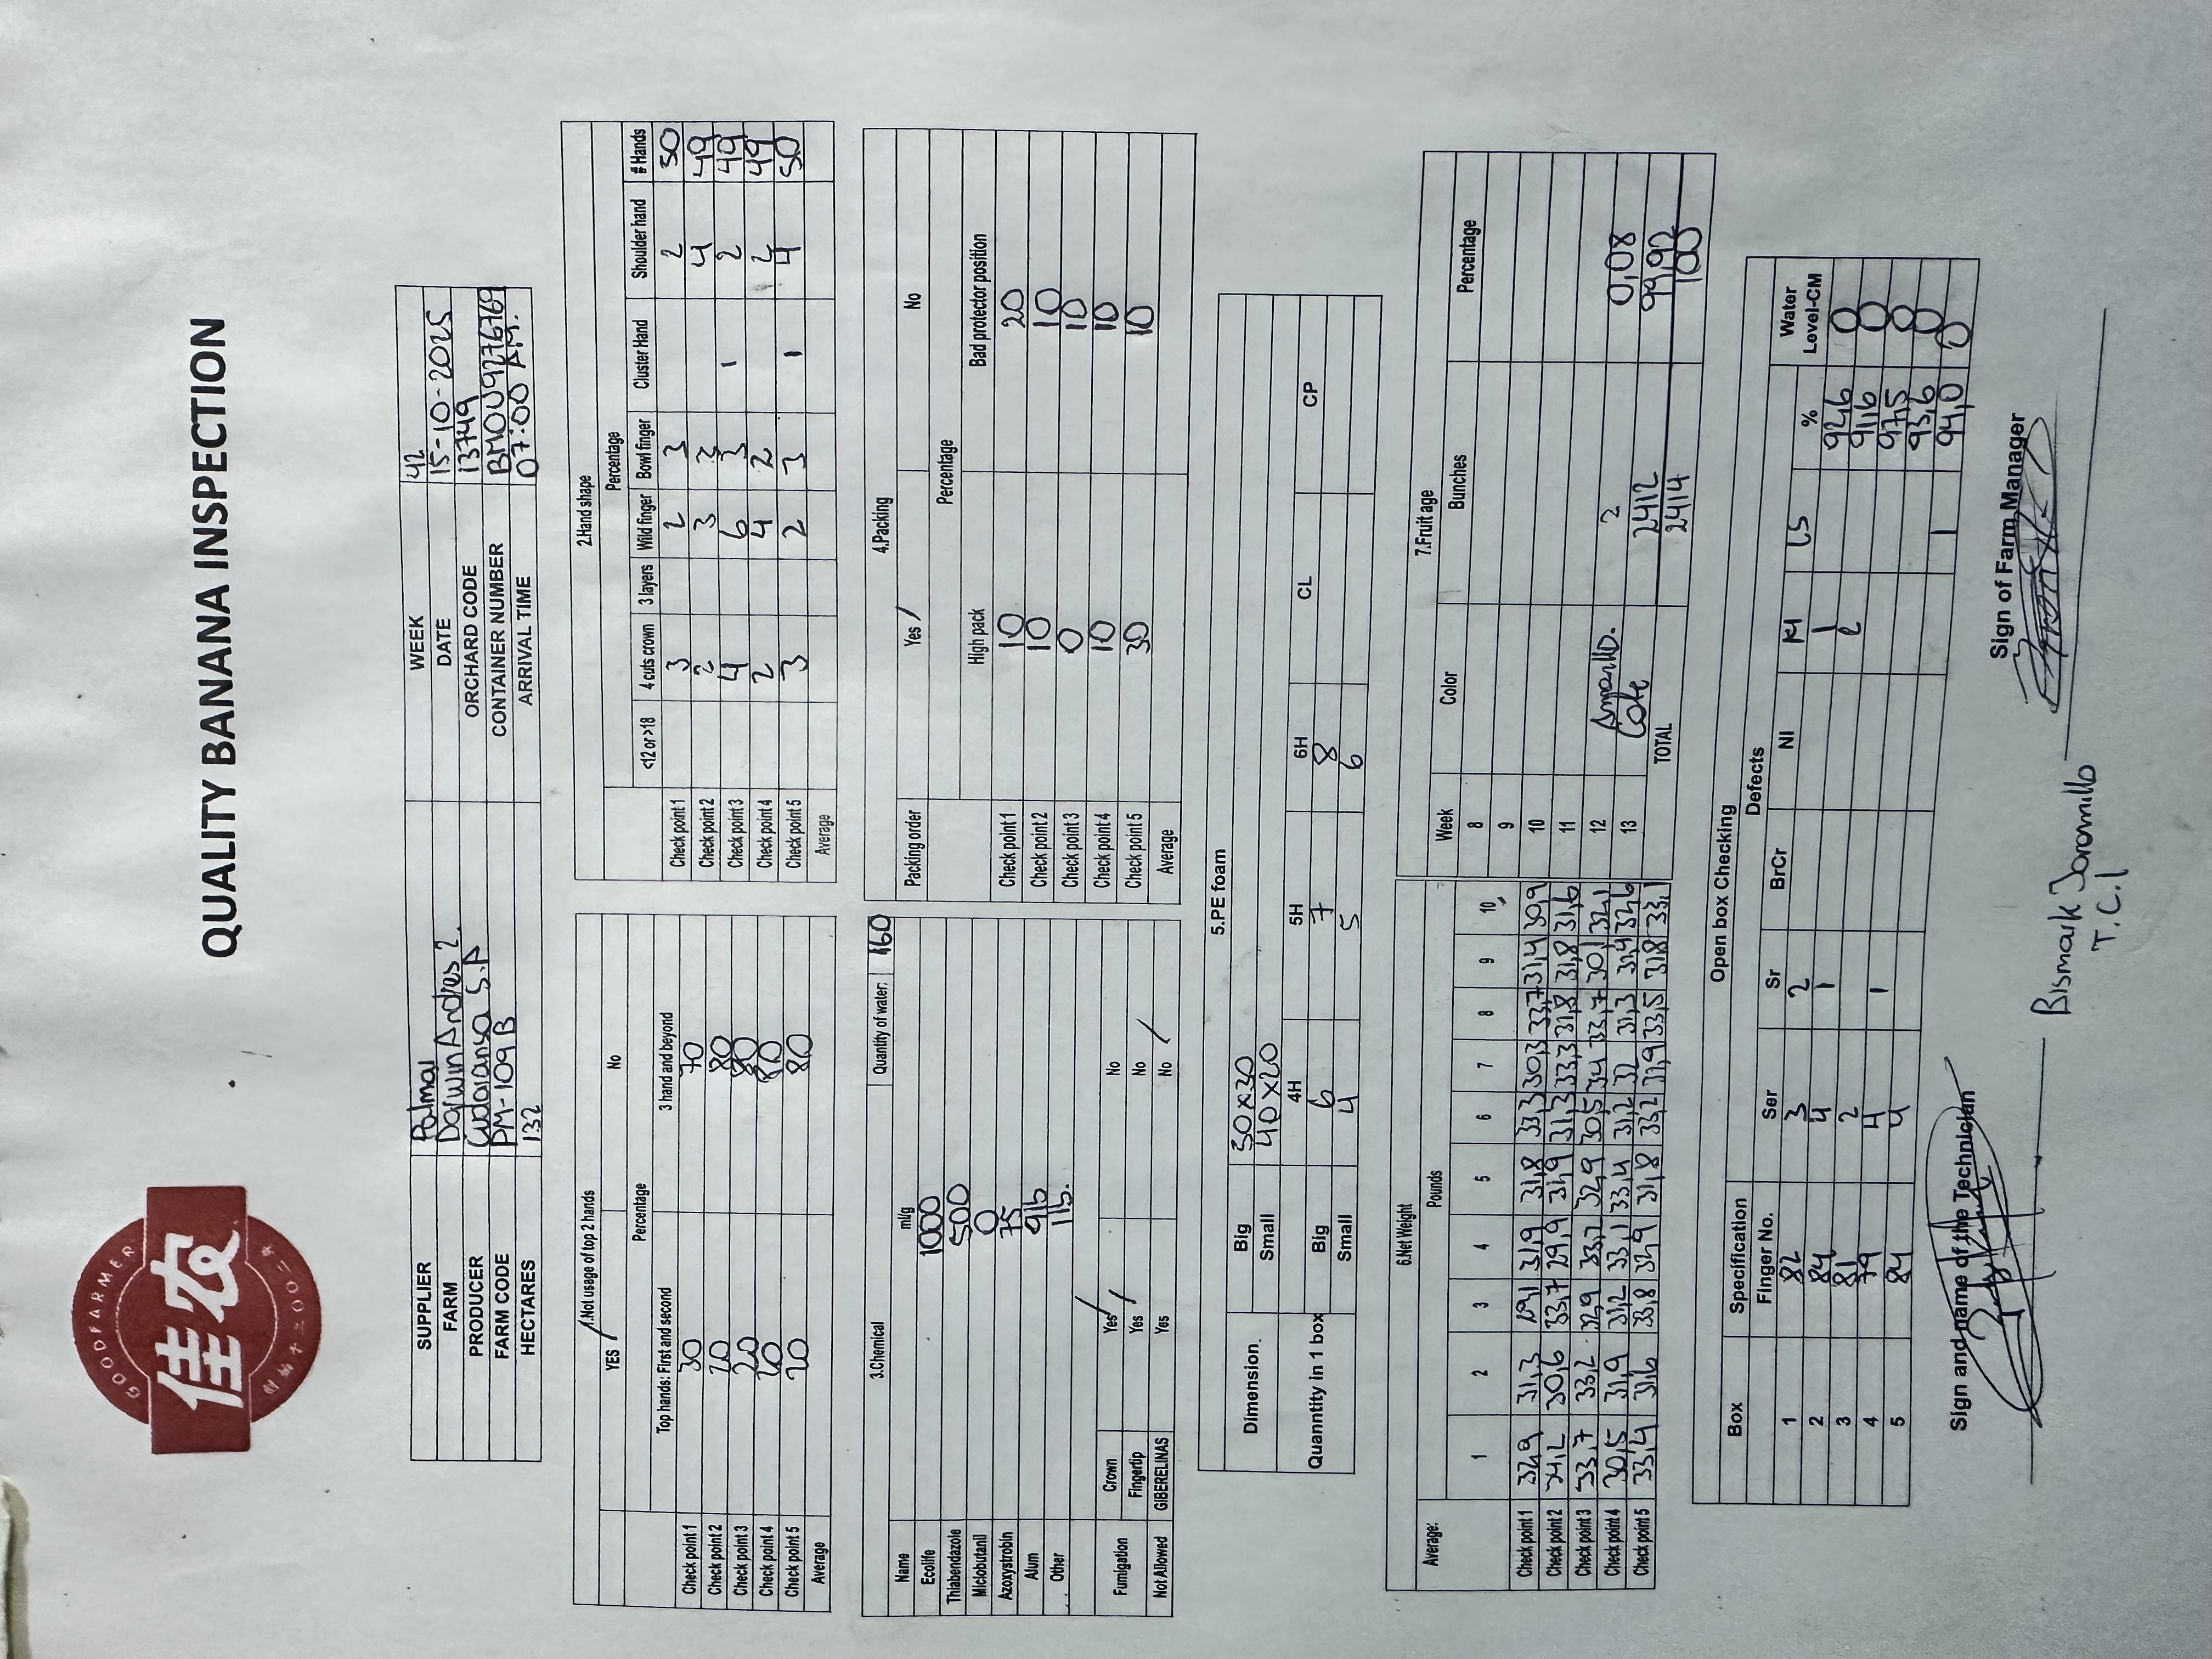 GOODFARMER
佳农
创始于二〇〇二年
QUALITY BANANA INSPECTION
SUPPLIER Palmar WEEK 42
FARM Darwin Andres 2. DATE 15-10-2025
PRODUCER S.A ORCHARD CODE 13749
FARM CODE PM-109 B CONTAINER NUMBER BMOU9276769
HECTARES 132 ARRIVAL TIME 07:00 AM.
1.Not usage of top 2 hands
YES / No
Percentage
Top hands: First and second 3 hand and beyond
Check point 1 30 70
Check point 2 20 80
Check point 3 20 80
Check point 4 20 80
Check point 5 20 80
Average
2.Hand shape
Percentage
<12 or >18 4 cuts crown 3 layers Wild finger Bowl finger Cluster Hand Shoulder hand # Hands
Check point 1 3 2 3 2 50
Check point 2 2 3 3 4 49
Check point 3 4 6 3 1 2 49
Check point 4 2 4 2 2 49
Check point 5 3 2 3 1 4 50
Average
3.Chemical Quantity of water: 160
Name ml/g
Ecolife 1000
Thiabendazole 500
Miclobutanil 0
Azoxystrobin 75
Alum 9lb
Other 1lb.
Fumigation Crown Yes / No
Fingertip Yes / No
Not Allowed GIBERELINAS Yes No /
4.Packing
Packing order Yes / No
Percentage
High pack Bad protector position
Check point 1 10 20
Check point 2 10 10
Check point 3 0 10
Check point 4 10 10
Check point 5 30 10
Average
5.PE foam
Dimension. Big 50x30
Small 40x20
Quanntity in 1 box 4H 5H 6H CL CP
Big 6 7 8
Small 4 5 6
6.Net Weight
Average: Pounds
1 2 3 4 5 6 7 8 9 10
Check point 1 32,9 31,3 29,1 31,9 31,8 33,3 30,3 33,7 31,4 30,9
Check point 2 34,2 30,6 33,7 29,9 31,9 31,3 33,3 31,8 31,8 31,6
Check point 3 33,7 33,2 32,9 33,2 32,9 30,5 34 33,7 30,1 32,1
Check point 4 30,5 31,9 31,2 33,1 33,4 31,2 32 31,3 31,4 32,6
Check point 5 33,4 31,6 33,8 32,9 31,8 33,2 32,9 33,5 32,8 33,1
7.Fruit age
Week Color Bunches Percentage
8
9
10
11
12 Amarillo. 2 0,08
13 Cafe 2412 99,92
TOTAL 2414 100
Open box Checking
Box Specification Defects
Finger No. Ser Sr BrCr NI LS % Water Level-CM
1 82 3 2 1 92,6 0
2 84 4 1 2 91,6 0
3 81 2 97,5 0
4 79 4 1 93,6 0
5 84 4 1 94,0 0
Sign and name of the Technician
Sign of Farm Manager
Bismark Jaramillo
T.C.I